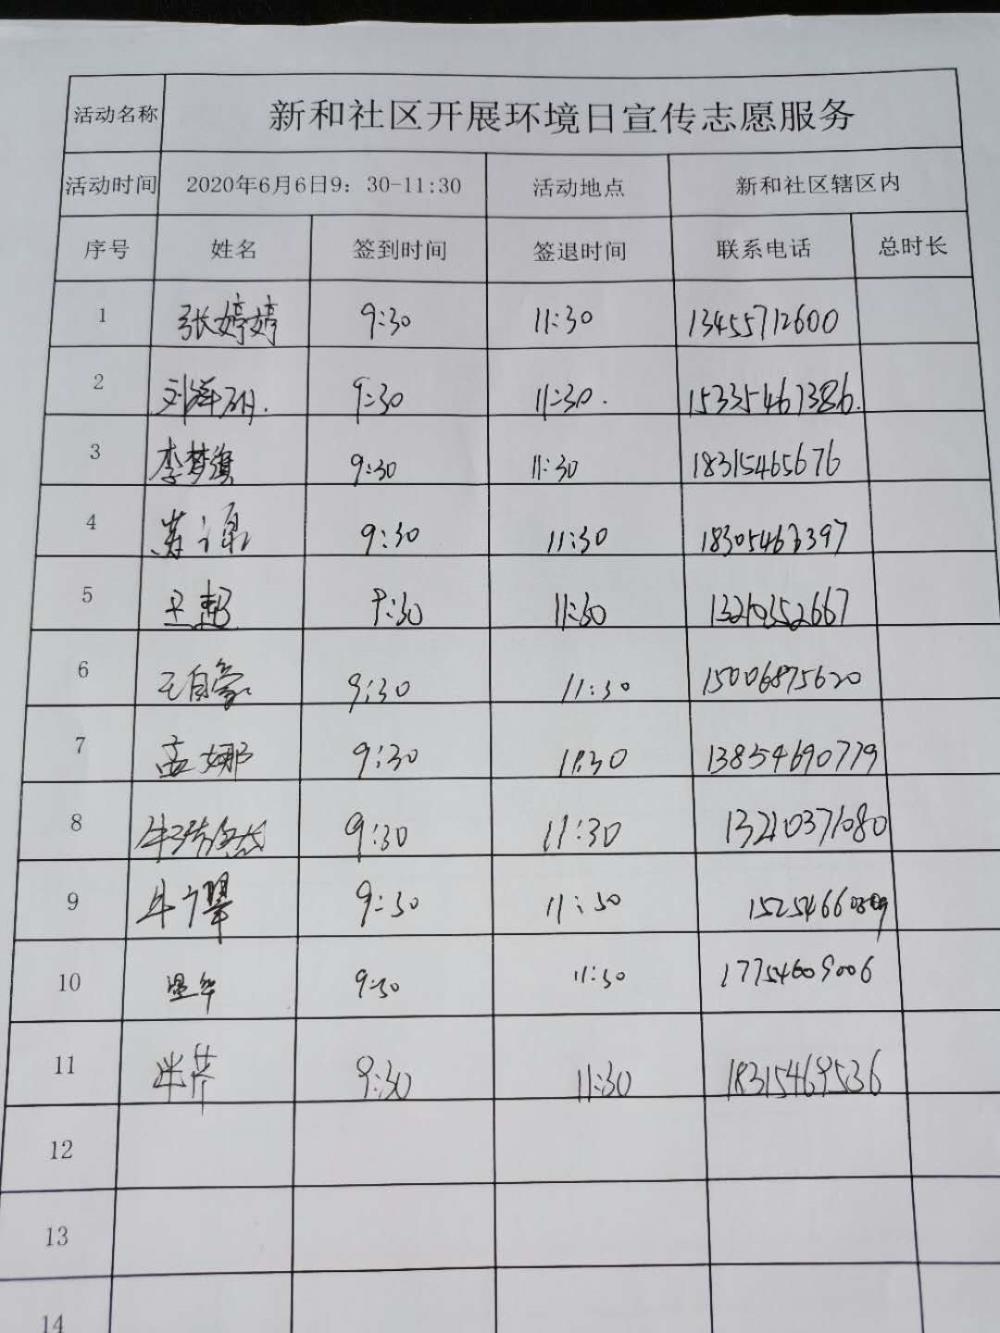 活动名称 新和社区开展环境日宣传志愿服务
活动时间 2020年6月6日9：30-11:30 活动地点 新和社区辖区内
序号 姓名 签到时间 签退时间 联系电话 总时长
1 张婷婷 9:30 11:30 13455712600
2 9:30 11:30. 15335467386.
3 李梦旗 9:30 11:30 18315465676
4 9:30 11:30 18305463397
5 9:30 11:30 13210352667
6 王自豪 9:30 11:30 15006875620
7 孟娜 9:30 11:30 13854690779
8 9:30 11:30 13210371080
9 9:30 11:30
10 9:30 11:30 17754609006
11 9:30 11:30 18315469536
12
13
14